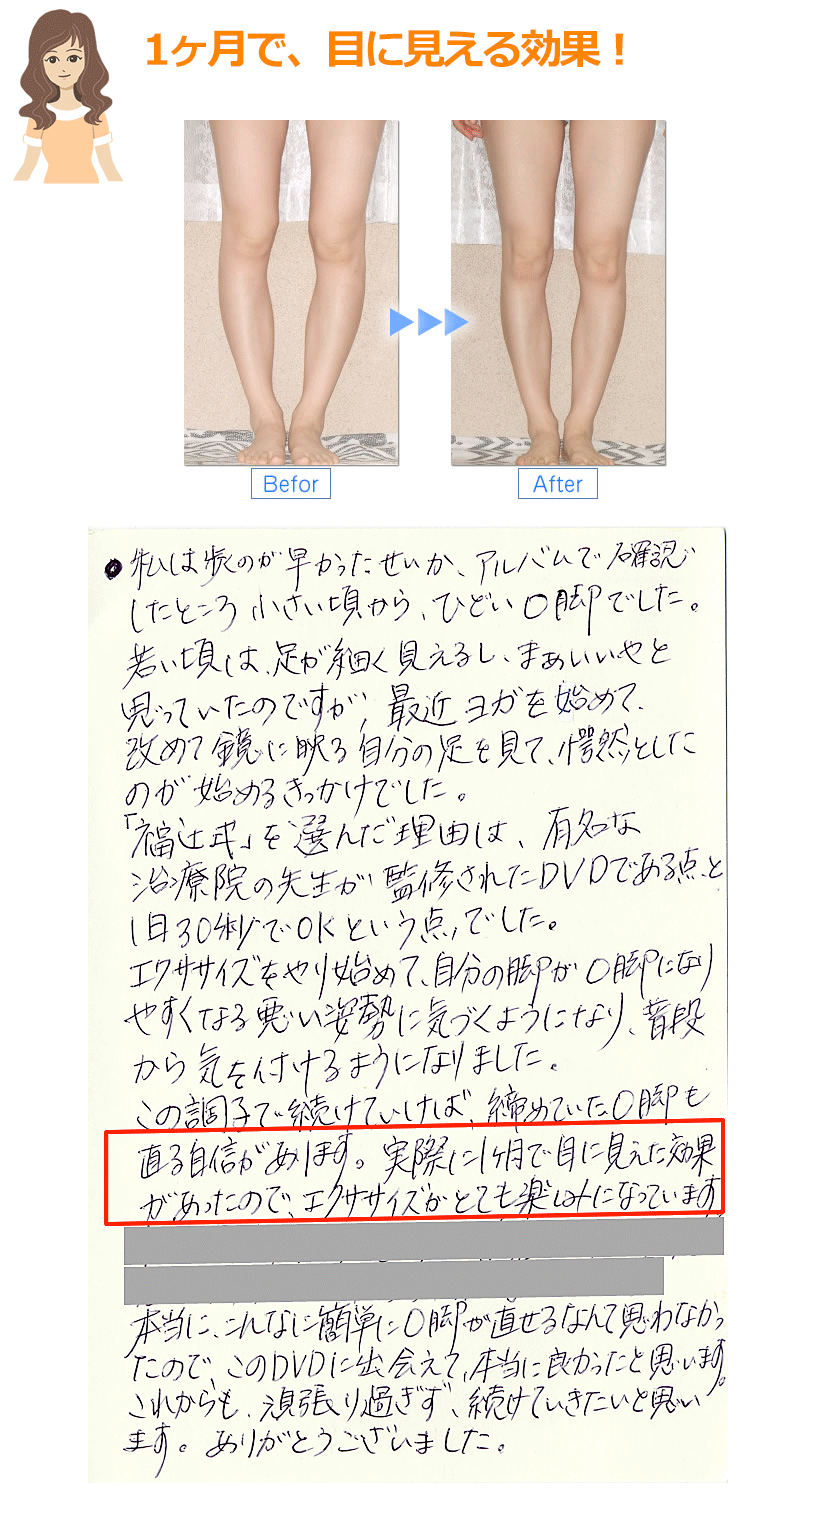 1ヶ月で、目に見える効果！
Befor
After
私は歩くのが早かったせいか、アルバムで確認
したところ小さい頃から、ひどいO脚でした。
若い頃は、足が細く見えるし、まぁいいやと
思っていたのですが、最近ヨガを始めて、
改めて鏡に映る自分の足を見て、愕然とした
のが始めるきっかけでした。
「福辻式」を選んだ理由は、有名な
治療院の先生が監修されたDVDである点と
1日30秒でOKという点でした。
エクササイズをやり始めて、自分の脚がO脚になり
やすくなる悪い姿勢に気づくようになり、普段
から気を付けるようになりました。
この調子で続けていけば、締めていたO脚も
直る自信があります。実際に1ヶ月で目に見えた効果
があったので、エクササイズがとても楽しみになっています
本当に、こんなに簡単にO脚が直せるなんて思わなかっ
たので、このDVDに出会えて、本当に良かったと思います。
これからも、頑張り過ぎず、続けていきたいと思い
ます。ありがとうございました。